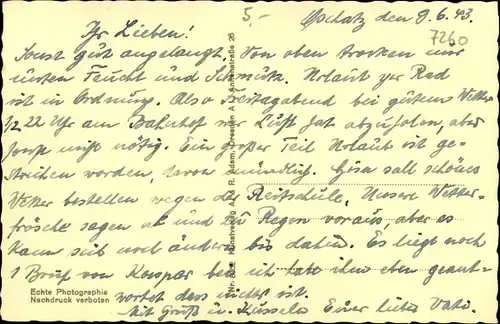 5,-
Oschatz den 9.6.43.
7260
Ihr Lieben!
Sonst gut angelangt. Von oben trocken nur
unten Feucht und Schmutz. Urlaub per Rad
ist in Ordnung. Also Freitagabend bei gutem Wetter
1/2 22 Uhr am Bahnhof wer Lust hat abzuholen, aber
sonst nicht nötig. Ein großer Teil Urlaub ist ge-
strichen worden, davon mündlich. Gisa soll schönes
Wetter bestellen wegen der Reitschule. Unsere Wetter-
frösche sagen ab und zu Regen voraus, aber es
kann sich noch ändern bis dahin. Es liegt noch
1 Brief von Kaspar bei ich habe ihm eben geant-
wortet dass nichts ist.
Mit Gruß u. Küsseln Euer lieber Vati.
Echte Photographie
Nachdruck verboten
Kunstverlag R. Adam, Dresden A 1, straße 26